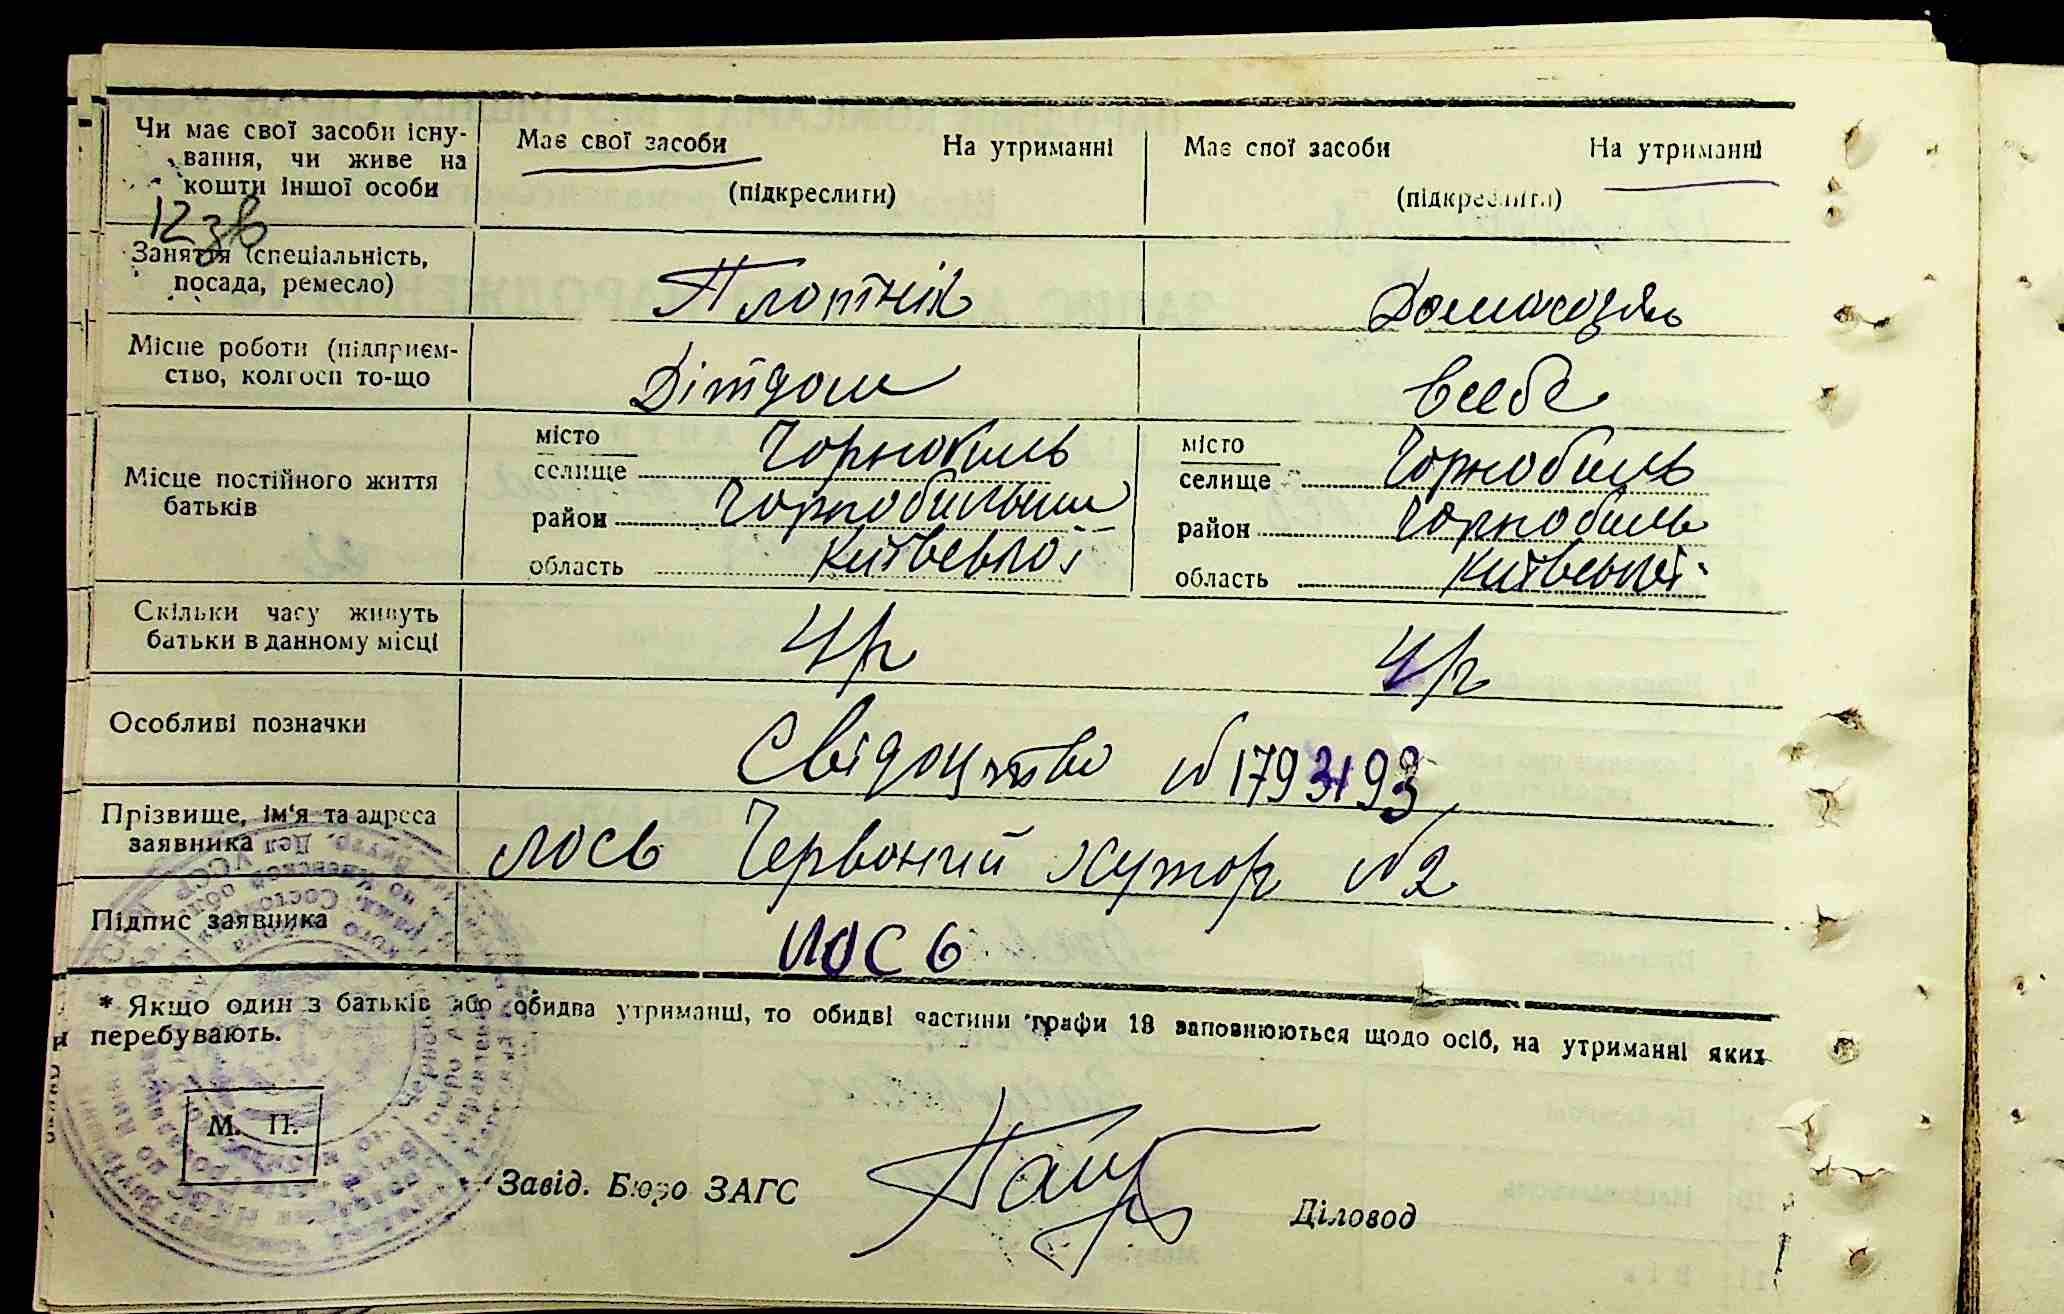 Чи має свої засоби існу-
вання, чи живе на
кошти іншої особи
Має свої засоби На утриманні
(підкреслити)
Має свої засоби На утриманні
(підкреслити)
12 зв
Заняття (спеціальність,
посада, ремесло)
Плотнік
Домохозяь
Місце роботи (підприєм-
ство, колгосп то-що
Дітдом
всебе
Місце постійного життя
батьків
місто
селище Чорнобиль
район
область Київської
місто
селище Чорнобиль
район Чорнобиль
область Київської
Скільки часу живуть
батьки в данному місці
4 р
4 р
Особливі позначки
Свідоцтво №1793193
Прізвище, ім'я та адреса
заявника
лось Червоний хутор №2
Підпис заявника
Лось
* Якщо один з батьків або обидва утриманці, то обидві частини графи 18 заповнюються щодо осіб, на утриманні яких
и перебувають.
М. П.
Завід. Бюро ЗАГС
Діловод